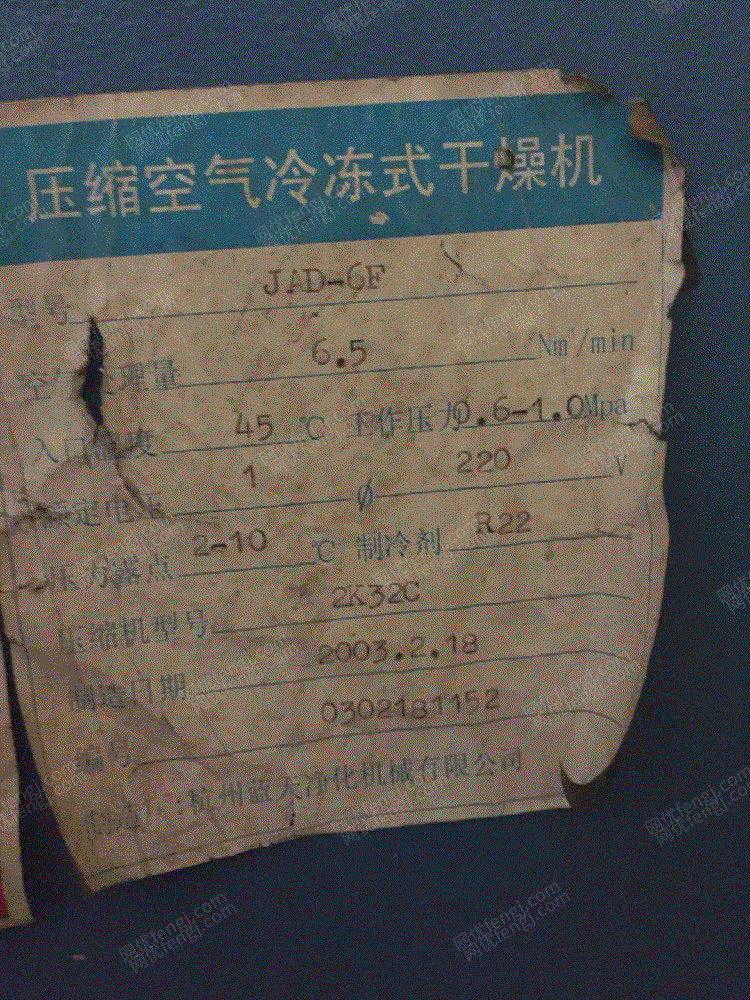 压缩空气冷冻式干燥机
型号 JAD-6F
空气处理量 6.5 Nm³/min
入口温度 45 ℃ 工作压力 0.6-1.0Mpa
额定电压 1 ϕ 220 V
压力露点 2-10 ℃ 制冷剂 R22
压缩机型号 2K32C
制造日期 2003.2.18
编号 0302181152
制造 :杭州蓝天净化机械有限公司
网优fengj.com